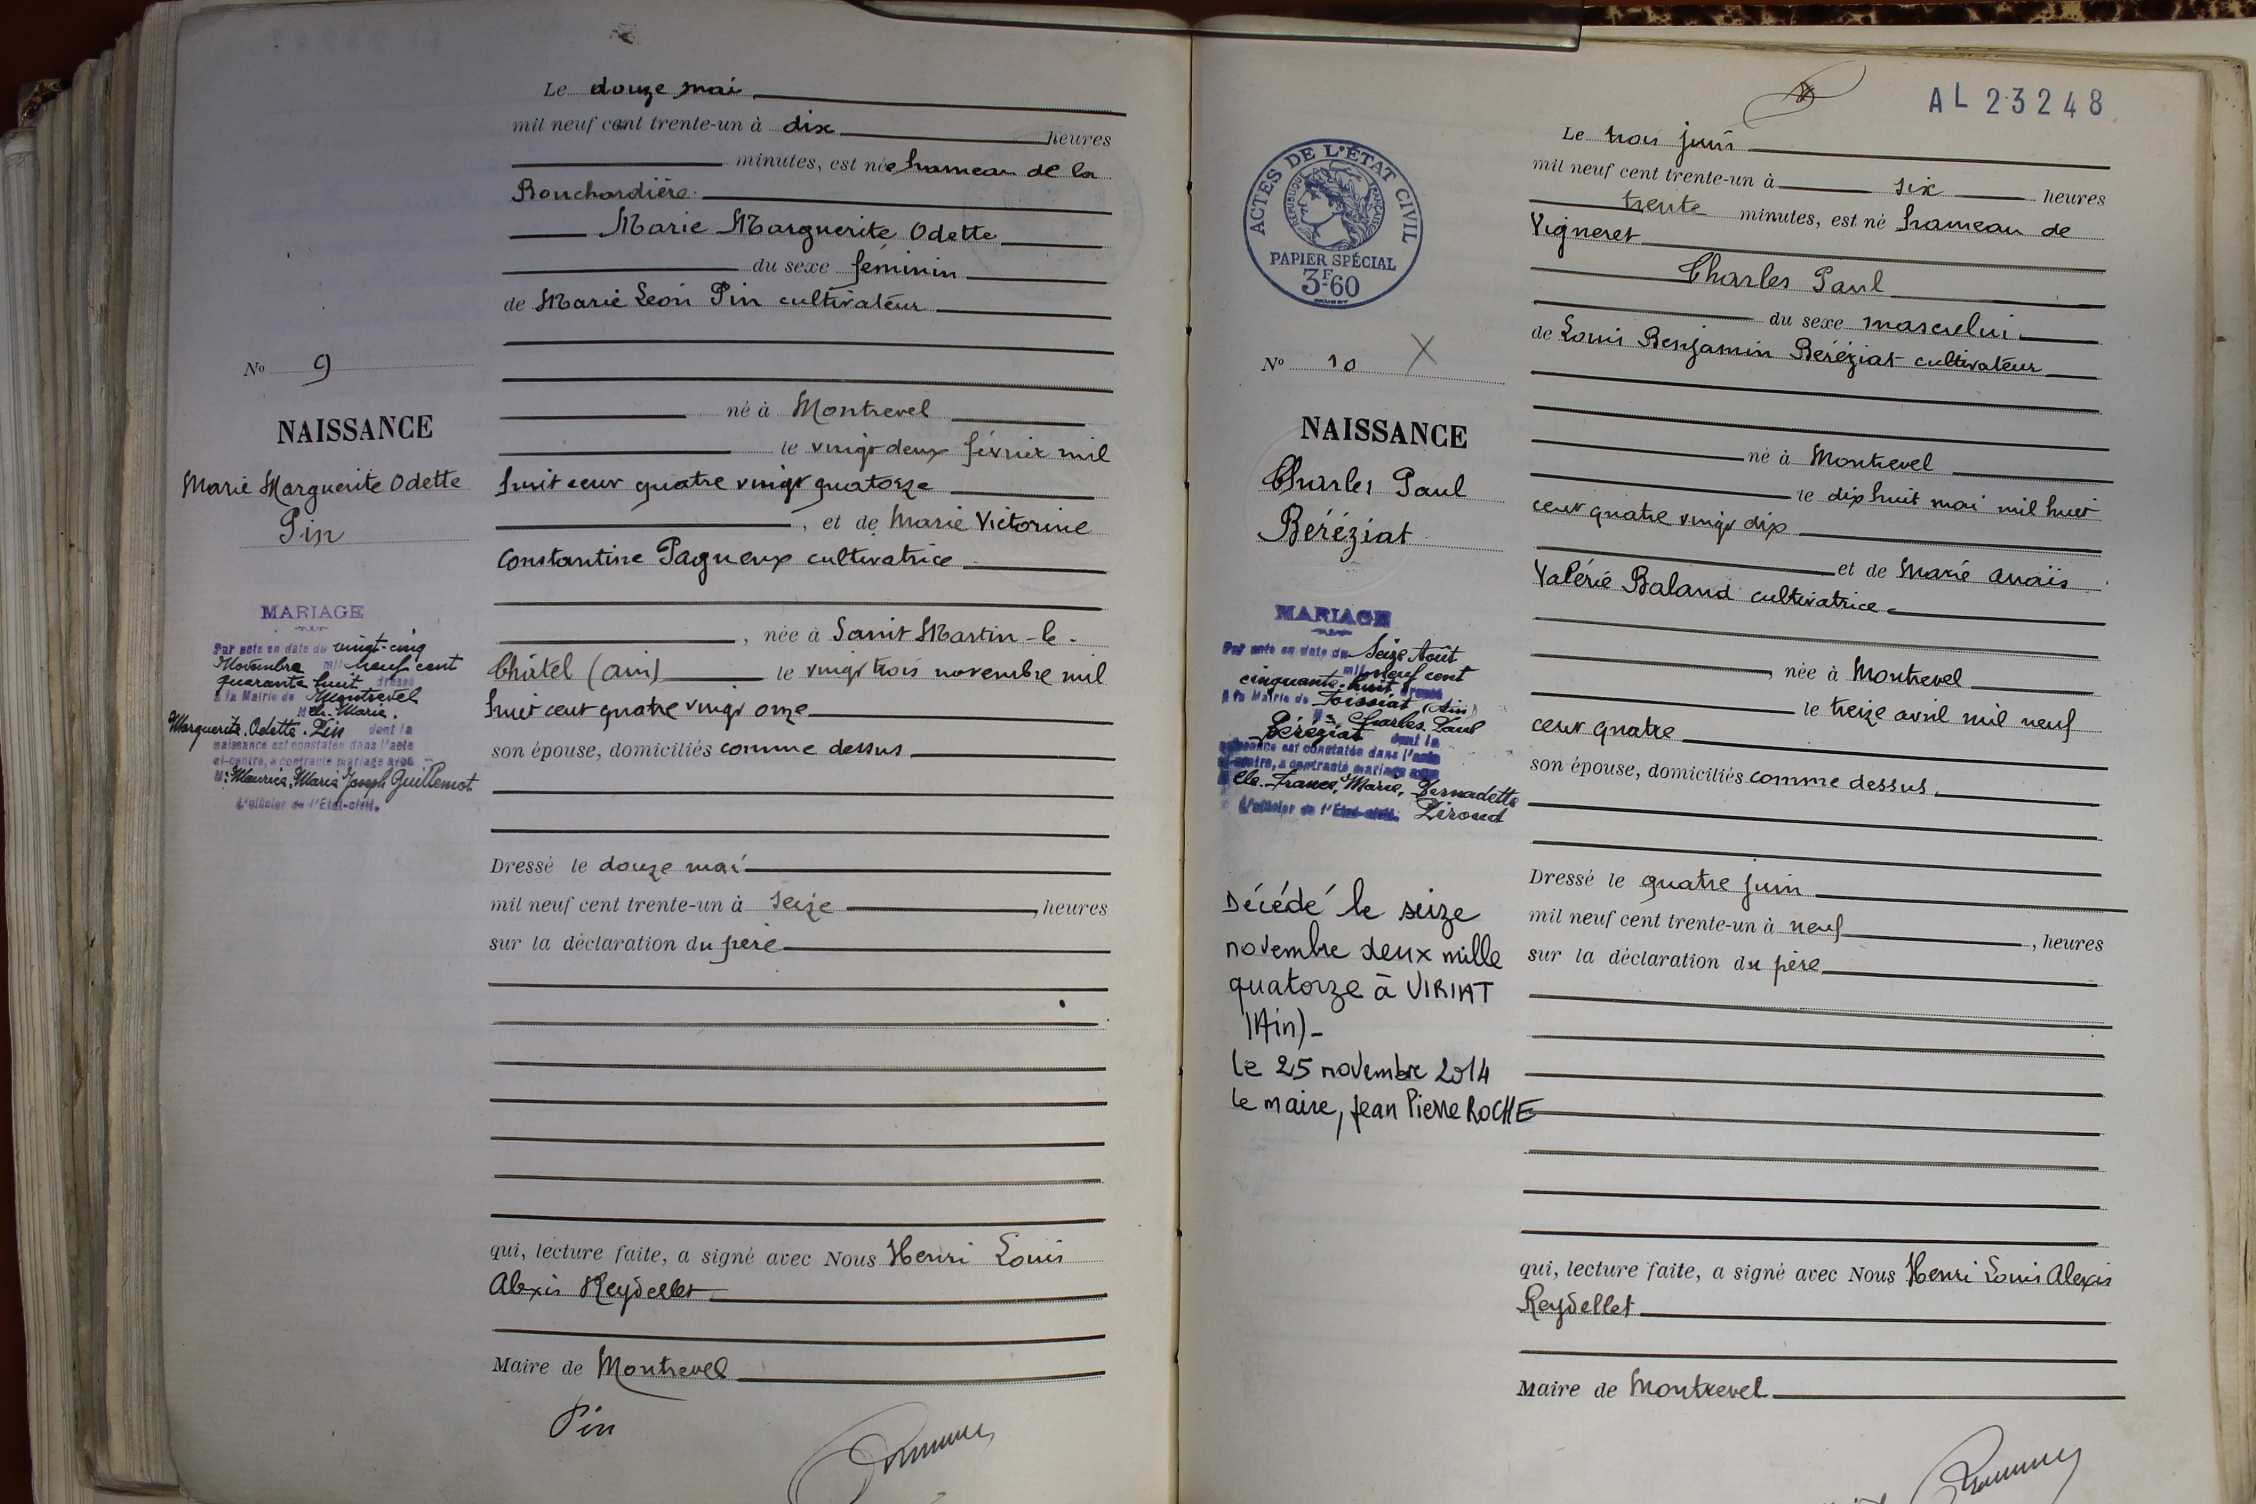 Le douze mai
mil neuf cent trente-un à dix heures
minutes, est née hameau de la
Bouchardière.
Marie Marguerite Odette
du sexe féminin
de Marie Léon Pin cultivateur
né à Montrevel
le vingt deux février mil
huit cent quatre vingt quatorze
, et de Marie Victorine
Constantine Pagneux cultivatrice
, née à Saint Martin-le-
Châtel (Ain) le vingt trois novembre mil
huit cent quatre vingt onze
son épouse, domiciliés comme dessus
Dressé le douze mai
mil neuf cent trente-un à seize , heures
sur la déclaration du père
qui, lecture faite, a signé avec Nous Henri Louis
Alexis Reydellet
Maire de Montrevel
Pin
No 9
NAISSANCE
Marie Marguerite Odette
Pin
MARIAGE
Par acte en date du vingt-cinq
Novembre mil neuf cent
quarante huit dressé
à la Mairie de Montrevel
Mlle Marie.
Marguerite. Odette. Pin dont la
naissance est constatée dans l'acte
ci-contre, a contracté mariage avec
Mr Maurice, Marie Joseph Guillemot
L'officier de l'Etat-civil.
AL 23248
ACTES DE L'ÉTAT CIVIL
RÉPUBLIQUE FRANÇAISE
PAPIER SPÉCIAL
3F.60
No 10 X
NAISSANCE
Charles Paul
Béréziat
MARIAGE
Par acte en date du Seize Août
mil neuf cent
cinquante-huit, dressé
à la Mairie de Foissiat (Ain)
Mr Charles Paul
Béréziat dont la
naissance est constatée dans l'acte
ci-contre, a contracté mariage avec
Mlle. France, Marie, Bernadette
L'officier de l'Etat-civil. Piroud
Décédé le seize
novembre deux mille
quatorze à VIRIAT
(Ain)-
le 25 novembre 2014
le maire, Jean Pierre ROCHE
Le trois juin
mil neuf cent trente-un à six heures
trente minutes, est né hameau de
Vigneret
Charles Paul
du sexe masculin
de Louis Benjamin Béréziat cultivateur
né à Montrevel
le dix huit mai mil huit
cent quatre vingt dix
et de Marie Anaïs
Valérie Baland cultivatrice
née à Montrevel
le treize avril mil neuf
cent quatre
son épouse, domiciliés comme dessus.
Dressé le quatre juin
mil neuf cent trente-un à neuf , heures
sur la déclaration du père
qui, lecture faite, a signé avec Nous Henri Louis Alexis
Reydellet
Maire de Montrevel